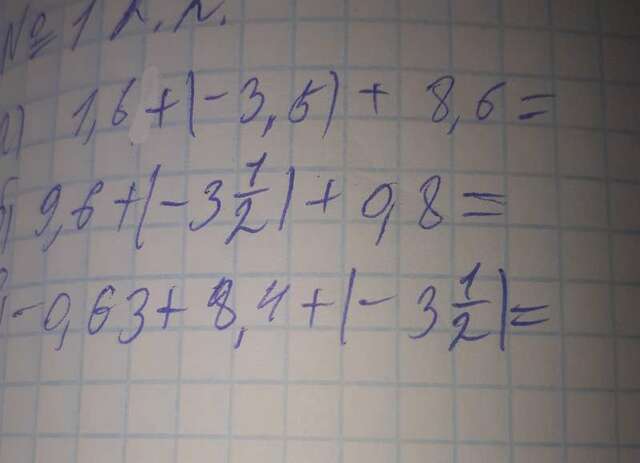 № 1 К. К.
а) 1,6 + (-3,5) + 8,6 =
б) 9,6 + (-3 1/2) + 0,8 =
в) -0,63 + 8,4 + (-3 1/2) =